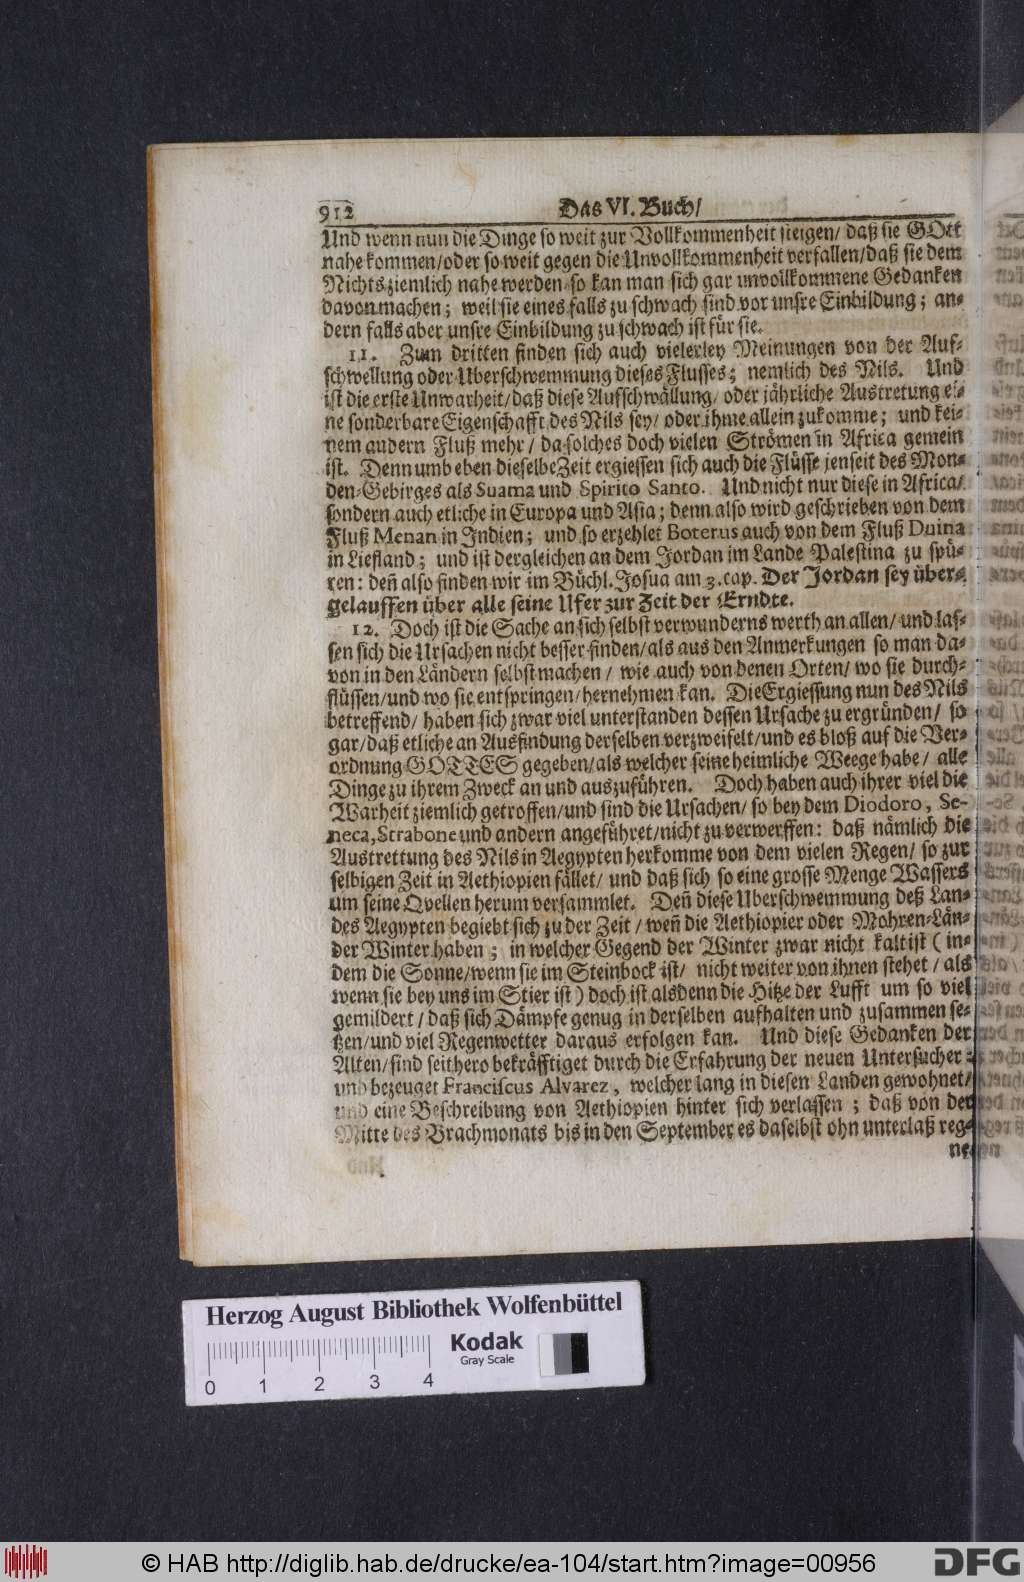 912
Das VI. Buch/
Und wenn nun die Dinge so weit zur Vollkommenheit steigen/ daß sie GOtt
nahe kommen/oder so weit gegen die Unvollkommenheit verfallen/daß sie dem
Nichts ziemlich nahe werden so kan man sich gar unvollkommene Gedanken
davon machen; weil sie eines falls zu schwach sind vor unsre Einbildung; an-
dern falls aber unsre Einbildung zu schwach ist für sie.
11. Zum dritten finden sich auch vielerley Meinungen von der Auf-
schwellung oder Uberschwemmung dieses Flusses; nemlich des Nils. Und
ist die erste Unwarheit/daß diese Aufschwällung/ oder jährliche Austretung ei-
ne sonderbare Eigenschafft des Nils sey/ oder ihme allein zukomme; und kei-
nem andern Fluß mehr/ da solches doch vielen Strömen in Africa gemein
ist. Denn umb eben dieselbe Zeit ergiessen sich auch die Flüsse jenseit des Mon-
den-Gebirges als Suama und Spirito Santo. Und nicht nur diese in Africa/
sondern auch etliche in Europa und Asia; denn also wird geschrieben von dem
Fluß Menan in Indien; und so erzehlet Boterus auch von dem Fluß Duina
in Liefland; und ist dergleichen an dem Jordan im Lande Palestina zu spü-
ren: deñ also finden wir im Büchl. Josua am 3. cap. Der Jordan sey über-
gelauffen über alle seine Ufer zur Zeit der Erndte.
12. Doch ist die Sache an sich selbst verwunderns werth an allen/ und las-
sen sich die Ursachen nicht besser finden/als aus den Anmerkungen so man da-
von in den Ländern selbst machen/ wie auch von denen Orten/ wo sie durch-
flüssen/und wo sie entspringen/hernehmen kan. Die Ergiessung nun des Nils
betreffend/ haben sich zwar viel unterstanden dessen Ursache zu ergründen/ so
gar/daß etliche an Ausfindung derselben verzweifelt/und es bloß auf die Ver-
ordnung GOTTES gegeben/als welcher seine heimliche Weege habe/ alle
Dinge zu ihrem Zweck an und auszuführen. Doch haben auch ihrer viel die
Warheit ziemlich getroffen/und sind die Ursachen/ so bey dem Diodoro, Se-
neca, Strabone und andern angeführet/nicht zu verwerffen: daß nämlich die
Austrettung des Nils in Aegypten herkomme von dem vielen Regen/ so zur
selbigen Zeit in Aethiopien fället/ und daß sich so eine grosse Menge Wassers
um seine Qvellen herum versammlet. Deñ diese Uberschwemmung deß Lan-
des Aegypten begiebt sich zu der Zeit/ weñ die Aethiopier oder Mohren-Län-
der Winter haben; in welcher Gegend der Winter zwar nicht kalt ist (in-
dem die Sonne/wenn sie im Steinbock ist/ nicht weiter von ihnen stehet/ als
wenn sie bey uns im Stier ist) doch ist alsdenn die Hitze der Lufft um so viel
gemildert/ daß sich Dämpfe genug in derselben aufhalten und zusammen se-
tzen/und viel Regenwetter daraus erfolgen kan. Und diese Gedanken der
Alten/sind seithero bekräfftiget durch die Erfahrung der neuen Untersucher:
und bezeuget Franciscus Alvarez, welcher lang in diesen Landen gewohnet/
und eine Beschreibung von Aethiopien hinter sich verlassen; daß von der
Mitte des Brachmonats bis in den September es daselbst ohn unterlaß reg-
nen
Herzog August Bibliothek Wolfenbüttel
Kodak
Gray Scale
0 1 2 3 4
© HAB http://diglib.hab.de/drucke/ea-104/start.htm?image=00956
DFG